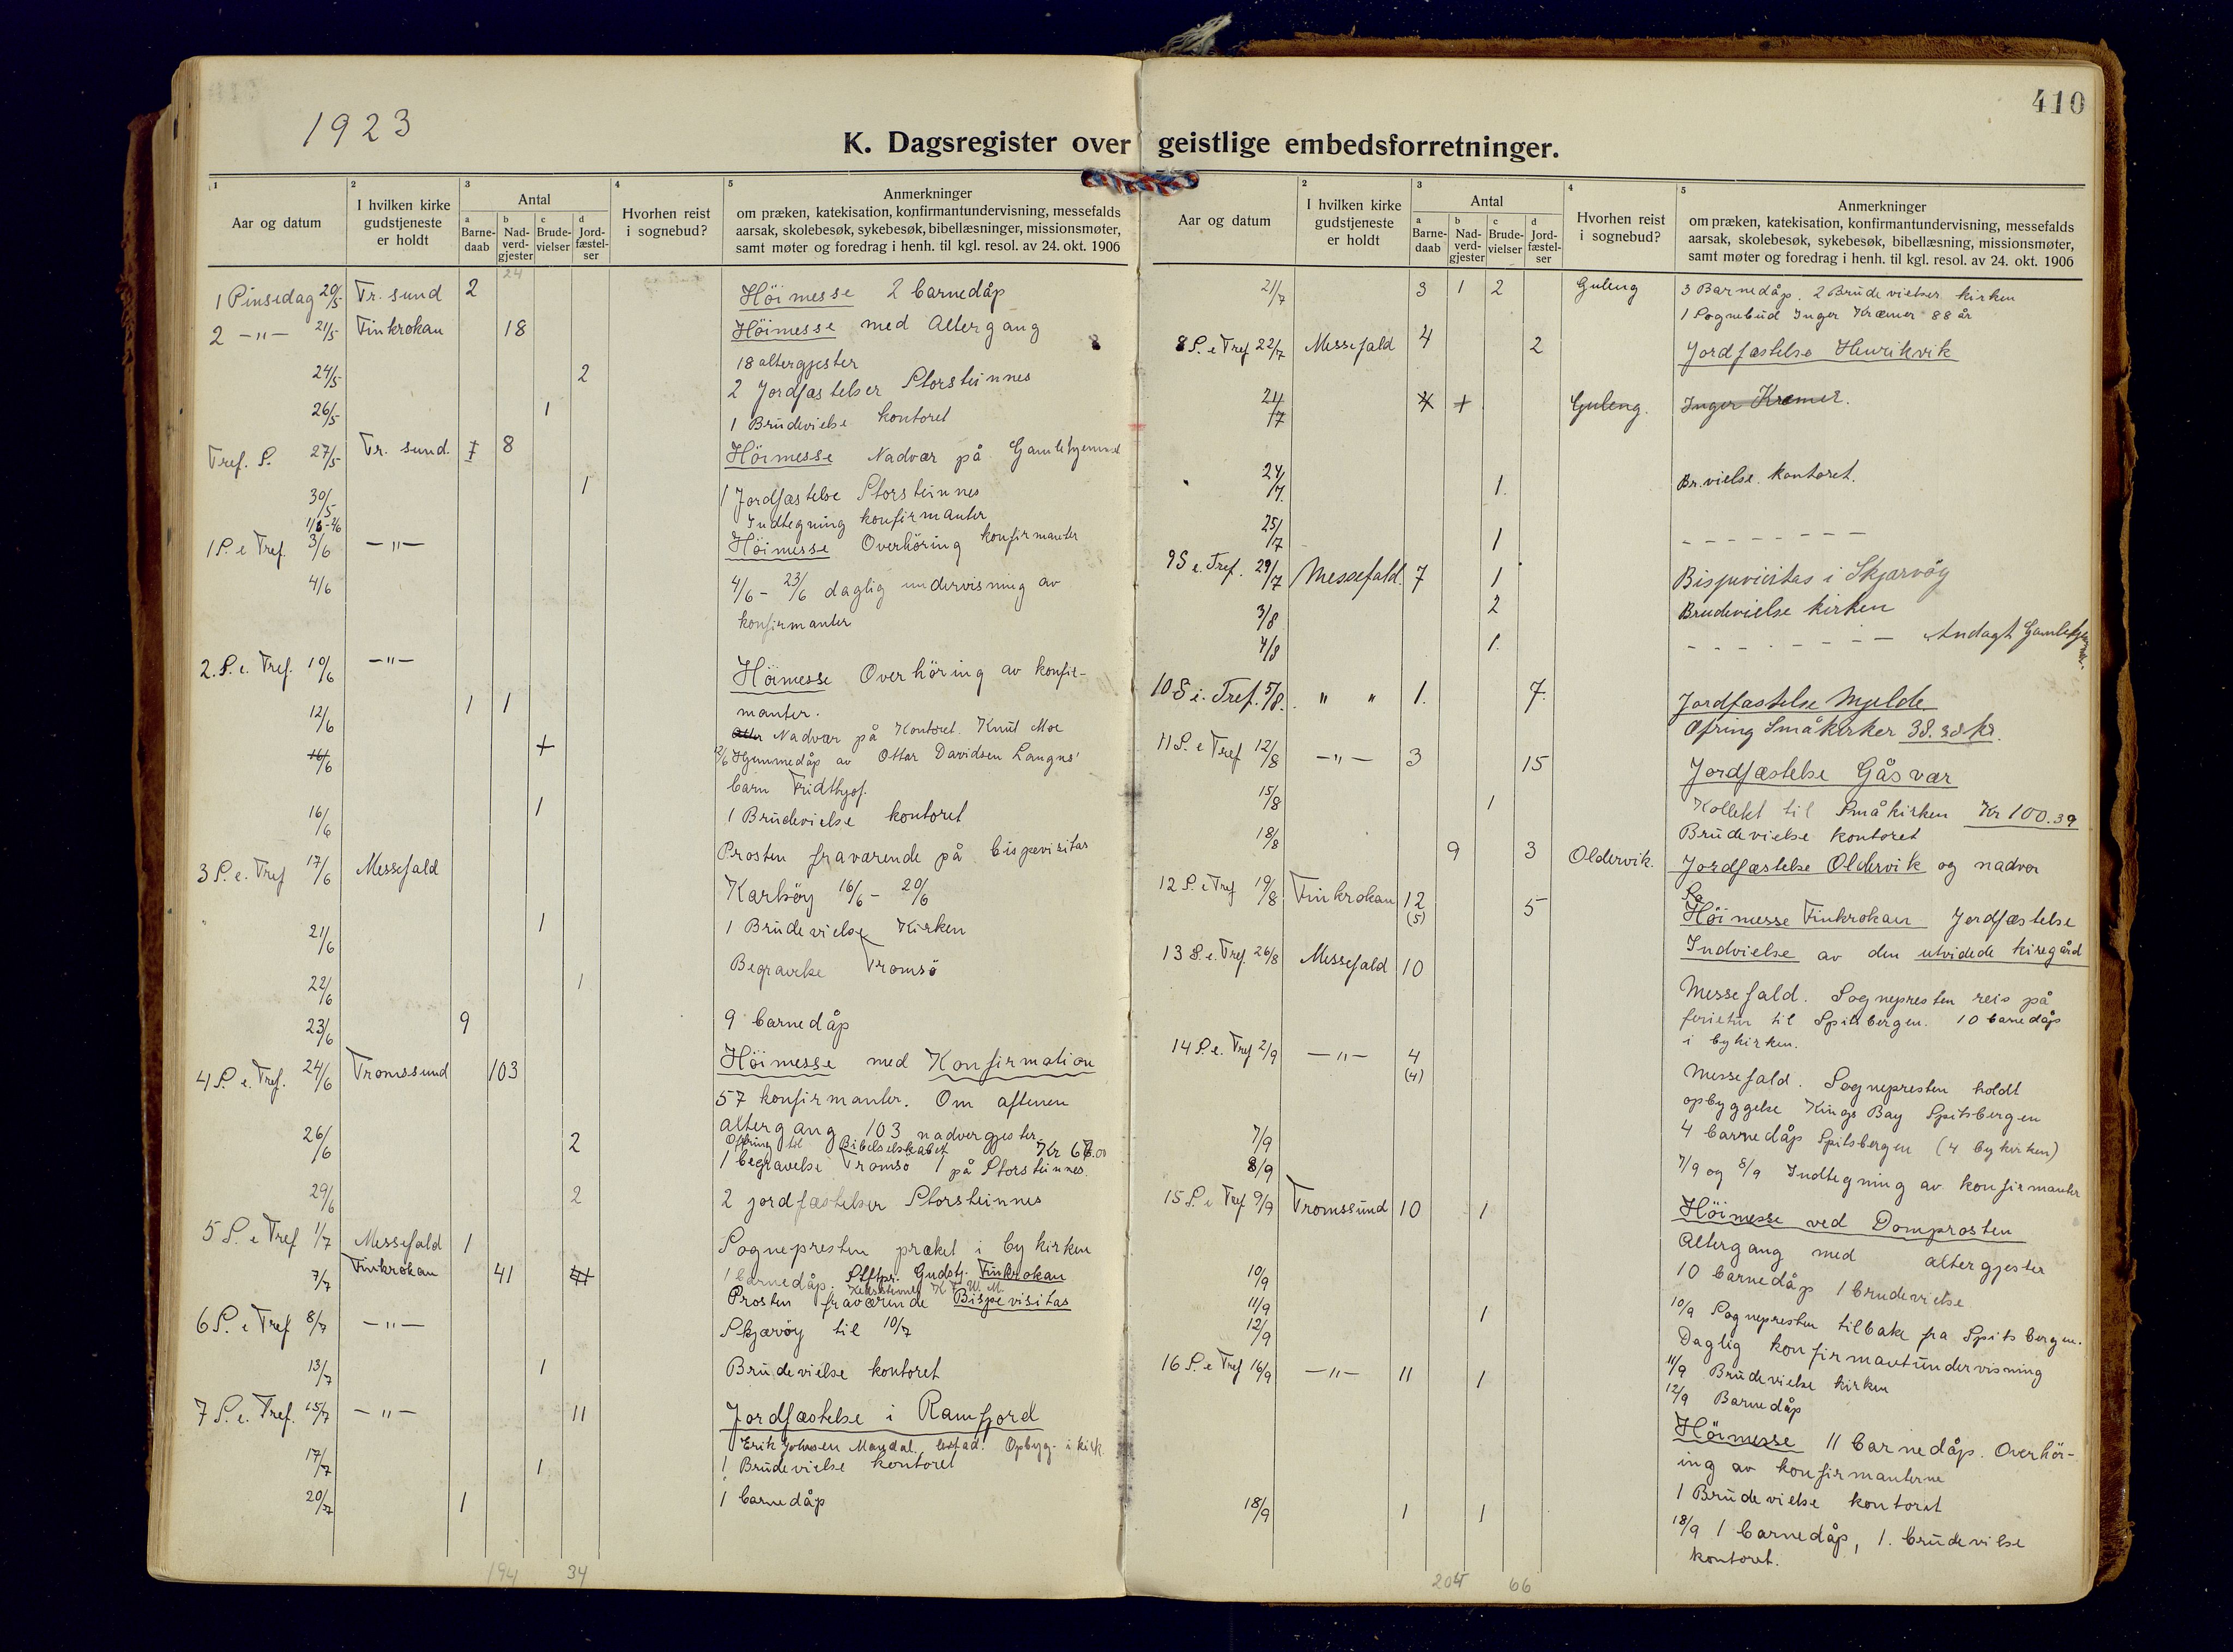 1923
410
K. Dagsregister over geistlige embedsforretninger.
1 Aar og datum
2 I hvilken kirke gudstjeneste er holdt
3 Antal
a Barne-daab
b Nad-verd-gjester
c Brude-vielser
d Jord-fæstel-ser
4 Hvorhen reist i sognebud?
5 Anmerkninger
om præken, katekisation, konfirmantundervisning, messefalds
aarsak, skolebesøk, sykebesøk, bibellæsninger, missionsmøter,
samt møter og foredrag i henh. til kgl. resol. av 24. okt. 1906
24
1 Pinsedag 20/5 Tr. sund 2 Höimesse 2 barnedåp
2 -"- 21/5 Finkrokan 18 Höimesse med Altergang
18 altergjester
24/5 2 2 Jordfæstelser Storsteinnes
26/5 1 1 Brudevielse kontoret
Tref. S. 27/5 Tr. sund. 1 8 Höimesse Nadvær på Gamlehjemmet
30/5 1 1 Jordfæstelse Storsteinnes
1/6-2/6 Indtegning konfirmanter
1 S. e Tref. 3/6 -"- Höimesse Overhöring konfirmanter
4/6 4/6 - 23/6 daglig undervisning av
konfirmanter
2. S. e. Tref. 10/6 -"- Höimesse Overhöring av konfir-
manter.
12/6 1 1 Nadvær på Kontoret. Knut Moe
12/6 Hjemmedåp av Ottar Davidsen Langnes'
16/6 +
barn Fridthjof.
16/6 1 1 Brudevielse kontoret
Prosten fraværende på bispevisitas
3 S. e. Tref 17/6 Messefald Karlsöy 16/6 - 20/6
21/6 1 1 Brudevielse Kirken
22/6 1 Begravelse Tromsö
23/6 9 9 barnedåp
4 S. e. Tref. 24/6 Tromssund 103 Höimesse med Konfirmation
57 konfirmanter. Om aftenen
altergang 103 nadvergjester
Offring til Bibelselskabet Kr 67.00
26/6 2 1 begravelse Tromsö 1 på Storsteinnes.
29/6 2 2 jordfæstelser Storsteinnes
5 S. e Tref 1/7 Messefald 1 Sognepresten præket i bykirken
7/7 Finkrokan 41 1 barnedåp. Stftpr. Gudstj. Finkrokan
K. F. W. M.
Prosten fraværende Bispevisitas
6 S. e Tref 8/7 -"- Skjærvöy til 10/7
13/7 1 Brudevielse kontoret
7 S. e. Tref. 15/7 -"- 11 Jordfæstelse i Ramfjord
Erik Johnsen Mandal. Opbyg. i kirk.
17/7 1 1 Brudevielse kontoret
20/7 1 1 barnedåp
194 34
2 I hvilken kirke gudstjeneste er holdt
Aar og datum
3 Antal
a Barne-daab
b Nad-verd-gjester
c Brude-vielser
d Jord-fæstel-ser
4 Hvorhen reist i sognebud?
5 Anmerkninger
om præken, katekisation, konfirmantundervisning, messefalds
aarsak, skolebesøk, sykebesøk, bibellæsning, missionsmøter,
samt møter og foredrag i henh. til kgl. resol. av 24. okt. 1906
21/7 3 1 2 Guleng 3 Barnedåp. 2 Brudevielser kirken
1 Sognebud Inger Kræmer 88 år
8 S. e Tref 22/7 Messefald 4 2 Jordfæstelse Henrikvik
24/7 4 + Guleng. Inger Kræmer.
24/7. 1. Br. vielse. kontoret.
25/7 1 - - - - - - - -
9 S e. Tref. 29/7 Messefald. 7 1 Bispevisitas i Skjærvöy
3/8 2 Brudevielse kirken
4/8 1. - - - - - - - Andagt Gamlehjemmet.
10 S e. Tref. 5/8. " " 1. 7. Jordfæstelse Mjelde.
Ofring Småkirker 38.30 kr.
11 S. e Tref 12/8 -"- 3 15 Jordfæstelse Gåsvær
Kollekt til Småkirken Kr 100.39
15/8 1 Brudevielse kontoret
18/8 9 3 Oldervik. Jordfæstelse Oldervik og nadver
12 S. e Tref 19/8 Finkrokan 12 (5) 5 Höimesse Finkrokan Jordfæstelse
Indvielse av den utvidede kiregård
13 S. e. Tref. 26/8 Messefald 10 Messefald. Sognepresten reis på
ferietur til Spitsbergen. 10 barnedåp
i bykirken.
14 S. e. Tref 2/9 -"- 4 (4) Messefald. Sognepresten holdt
opbyggelse Kings Bay Spitsbergen
4 barnedåp Spitsbergen (4 bykirken)
7/9
8/9 7/9 og 8/9 Indtegning av konfirmanter
15 S. e Tref 9/9 Tromssund 10 1 Höimesse ved Domprosten
Altergang med altergjester
10 barnedåp 1 brudevielse
10/9 10/9 Sognepresten tilbake fra Spitsbergen.
Daglig konfirmantundervisning
11/9 1 11/9 Brudevielse kirken
12/9 12/9 Barnedåp
16 S. e Tref 16/9 -"- 11 1 Höimesse 11 barnedåp. Overhör-
ing av konfirmanterne
1 Brudevielse kontoret
18/9 1 1 18/9 1 barnedåp, 1. brudevilse
kontoret.
204 66